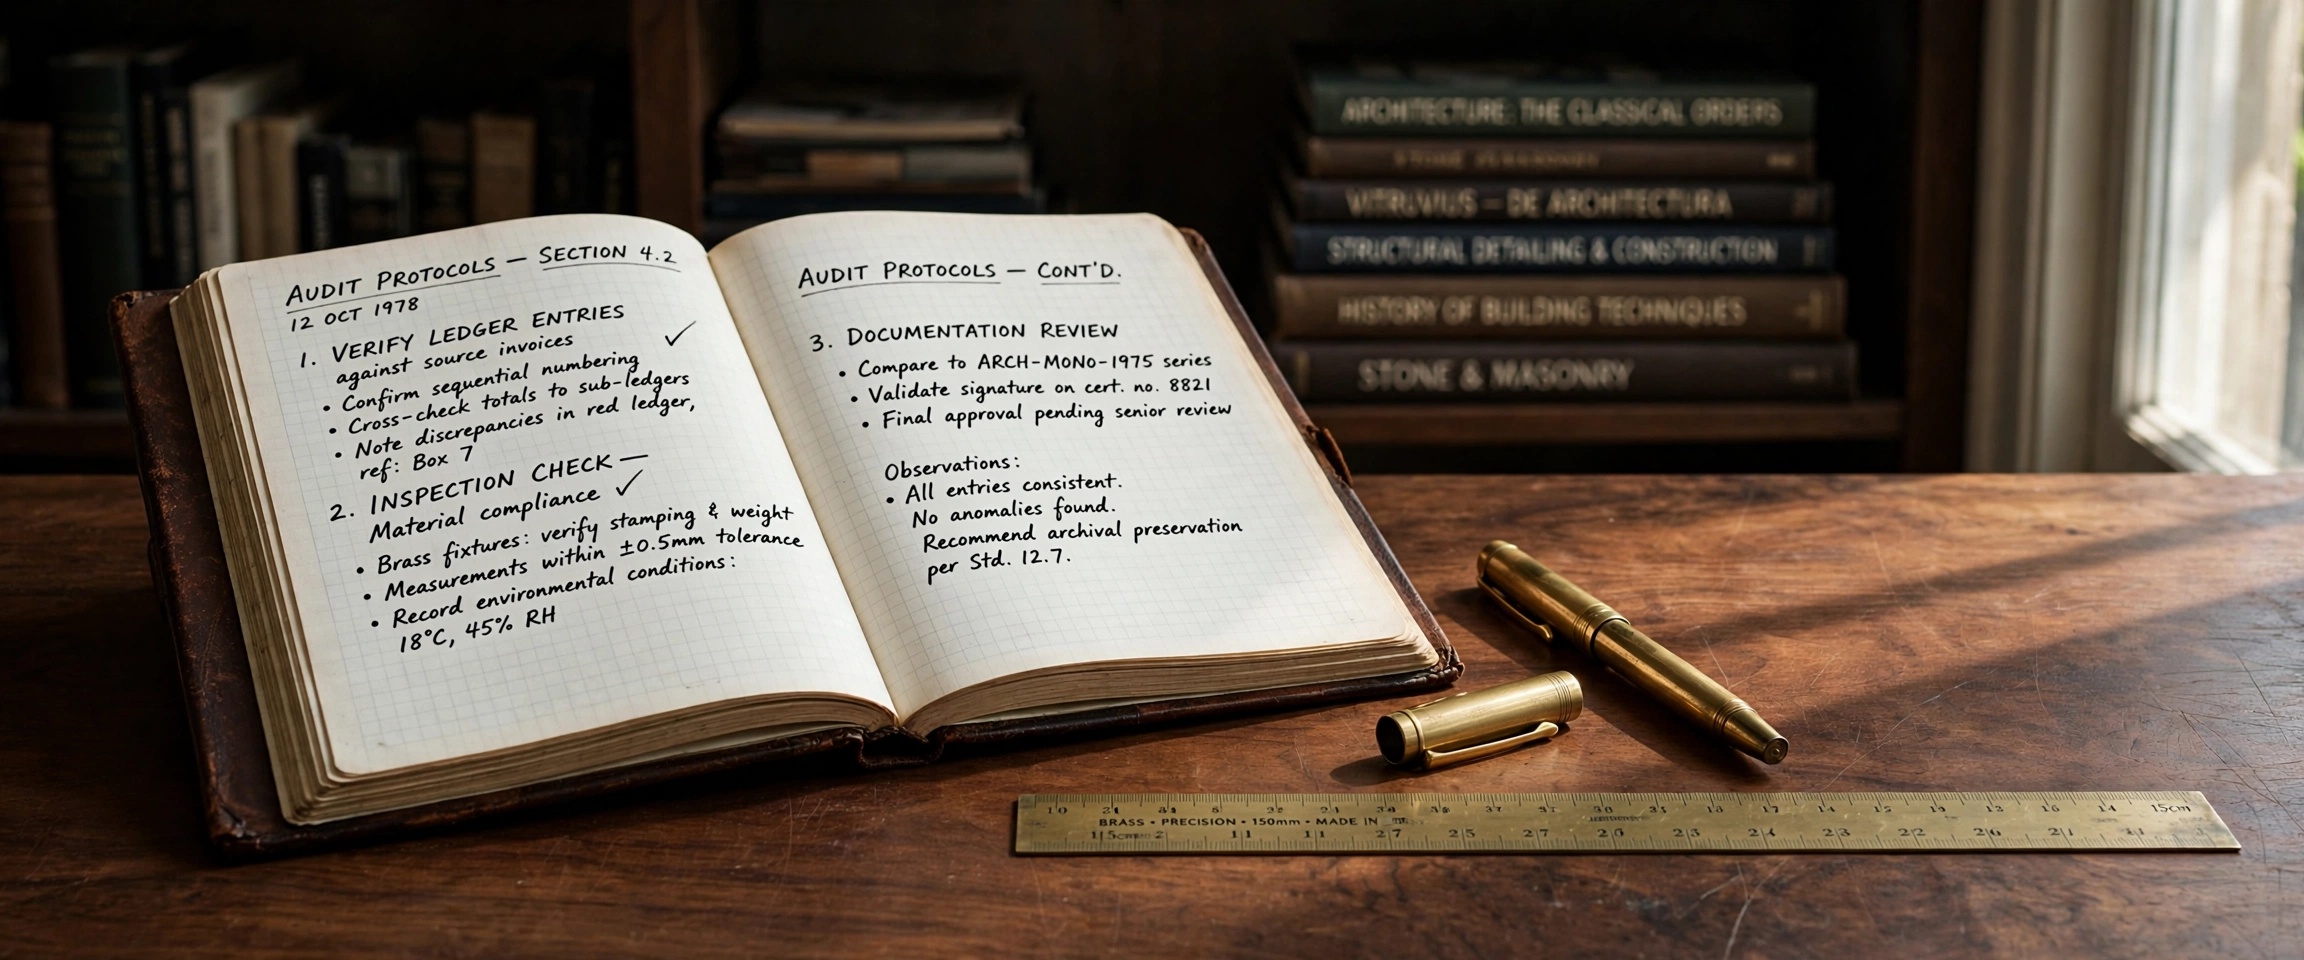 AUDIT PROTOCOLS — SECTION 4.2
12 OCT 1978
1. VERIFY LEDGER ENTRIES
against source invoices ✓
• Confirm sequential numbering
• Cross-check totals to sub-ledgers
• Note discrepancies in red ledger,
ref: Box 7
2. INSPECTION CHECK —
Material compliance ✓
• Brass fixtures: verify stamping & weight
• Measurements within ±0.5mm tolerance
• Record environmental conditions:
18°C, 45% RH
AUDIT PROTOCOLS — CONT'D.
3. DOCUMENTATION REVIEW
• Compare to ARCH-MONO-1975 series
• Validate signature on cert. no. 8821
• Final approval pending senior review
Observations:
• All entries consistent.
No anomalies found.
Recommend archival preservation
per Std. 12.7.
ARCHITECTURE: THE CLASSICAL ORDERS
VITRUVIUS — DE ARCHITECTURA
STRUCTURAL DETAILING & CONSTRUCTION
HISTORY OF BUILDING TECHNIQUES
STONE & MASONRY
15cm
BRASS • PRECISION • 150mm • MADE IN